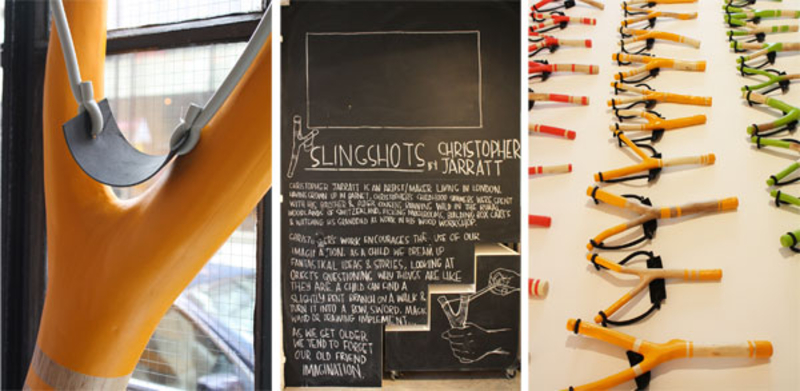 SLINGSHOTS BY CHRISTOPHER JARRATT
CHRISTOPHER JARRATT IS AN ARTIST/MAKER LIVING IN LONDON.
HAVING GROWN UP IN BARNET, CHRISTOPHER'S CHILDHOOD SUMMERS WERE SPENT
WITH HIS BROTHER & OLDER COUSINS RUNNING WILD IN THE RURAL
WOODLANDS OF SWITZERLAND, PICKING MUSHROOMS, BUILDING BOX CARTS
& WATCHING HIS GRANDDAD AT WORK IN HIS WOOD WORKSHOP.
WORK ENCOURAGES THE USE OF OUR
IMAGINATION. AS A CHILD WE DREAM UP
FANTASTICAL IDEAS & STORIES, LOOKING AT
OBJECTS QUESTIONING WHY THINGS ARE LIKE
THEY ARE. A CHILD CAN FIND A
SLIGHTLY BENT BRANCH ON A WALK &
TURN IT INTO A BOW, SWORD, MAGIC
WAND OR DRAWING IMPLEMENT....
AS WE GET OLDER
WE TEND TO FORGET
OUR OLD FRIEND
IMAGINATION.